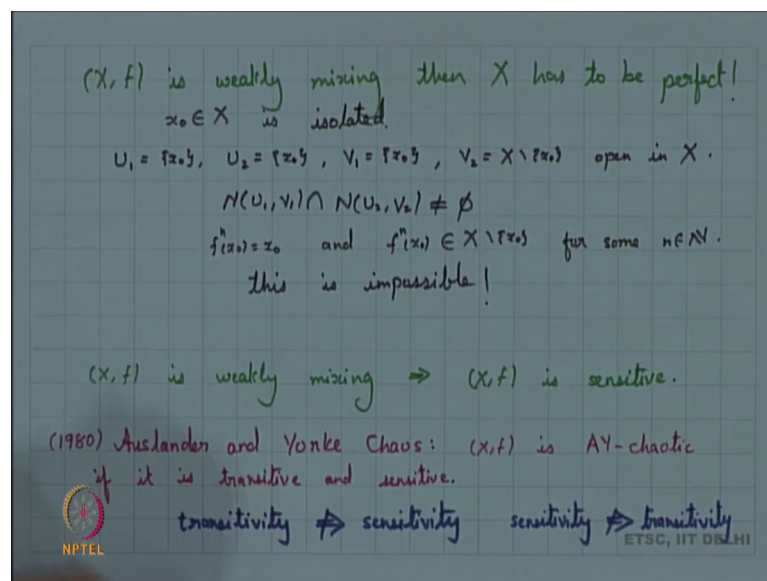 (X, f) is weakly mixing then X has to be perfect!
x₀ ∈ X is isolated.
U₁ = {x₀}, U₂ = {x₀}, V₁ = {x₀}, V₂ = X \ {x₀} open in X.
N(U₁, V₁) ∩ N(U₂, V₂) ≠ ∅
fⁿ(x₀) = x₀ and fⁿ(x₀) ∈ X \ {x₀} for some n ∈ ℕ.
this is impossible!
(X, f) is weakly mixing ⇒ (X, f) is sensitive.
(1980) Auslander and Yorke Chaos: (X, f) is AY-chaotic
if it is transitive and sensitive.
transitivity ⇏ sensitivity sensitivity ⇏ transitivity
NPTEL
ETSC, IIT DELHI